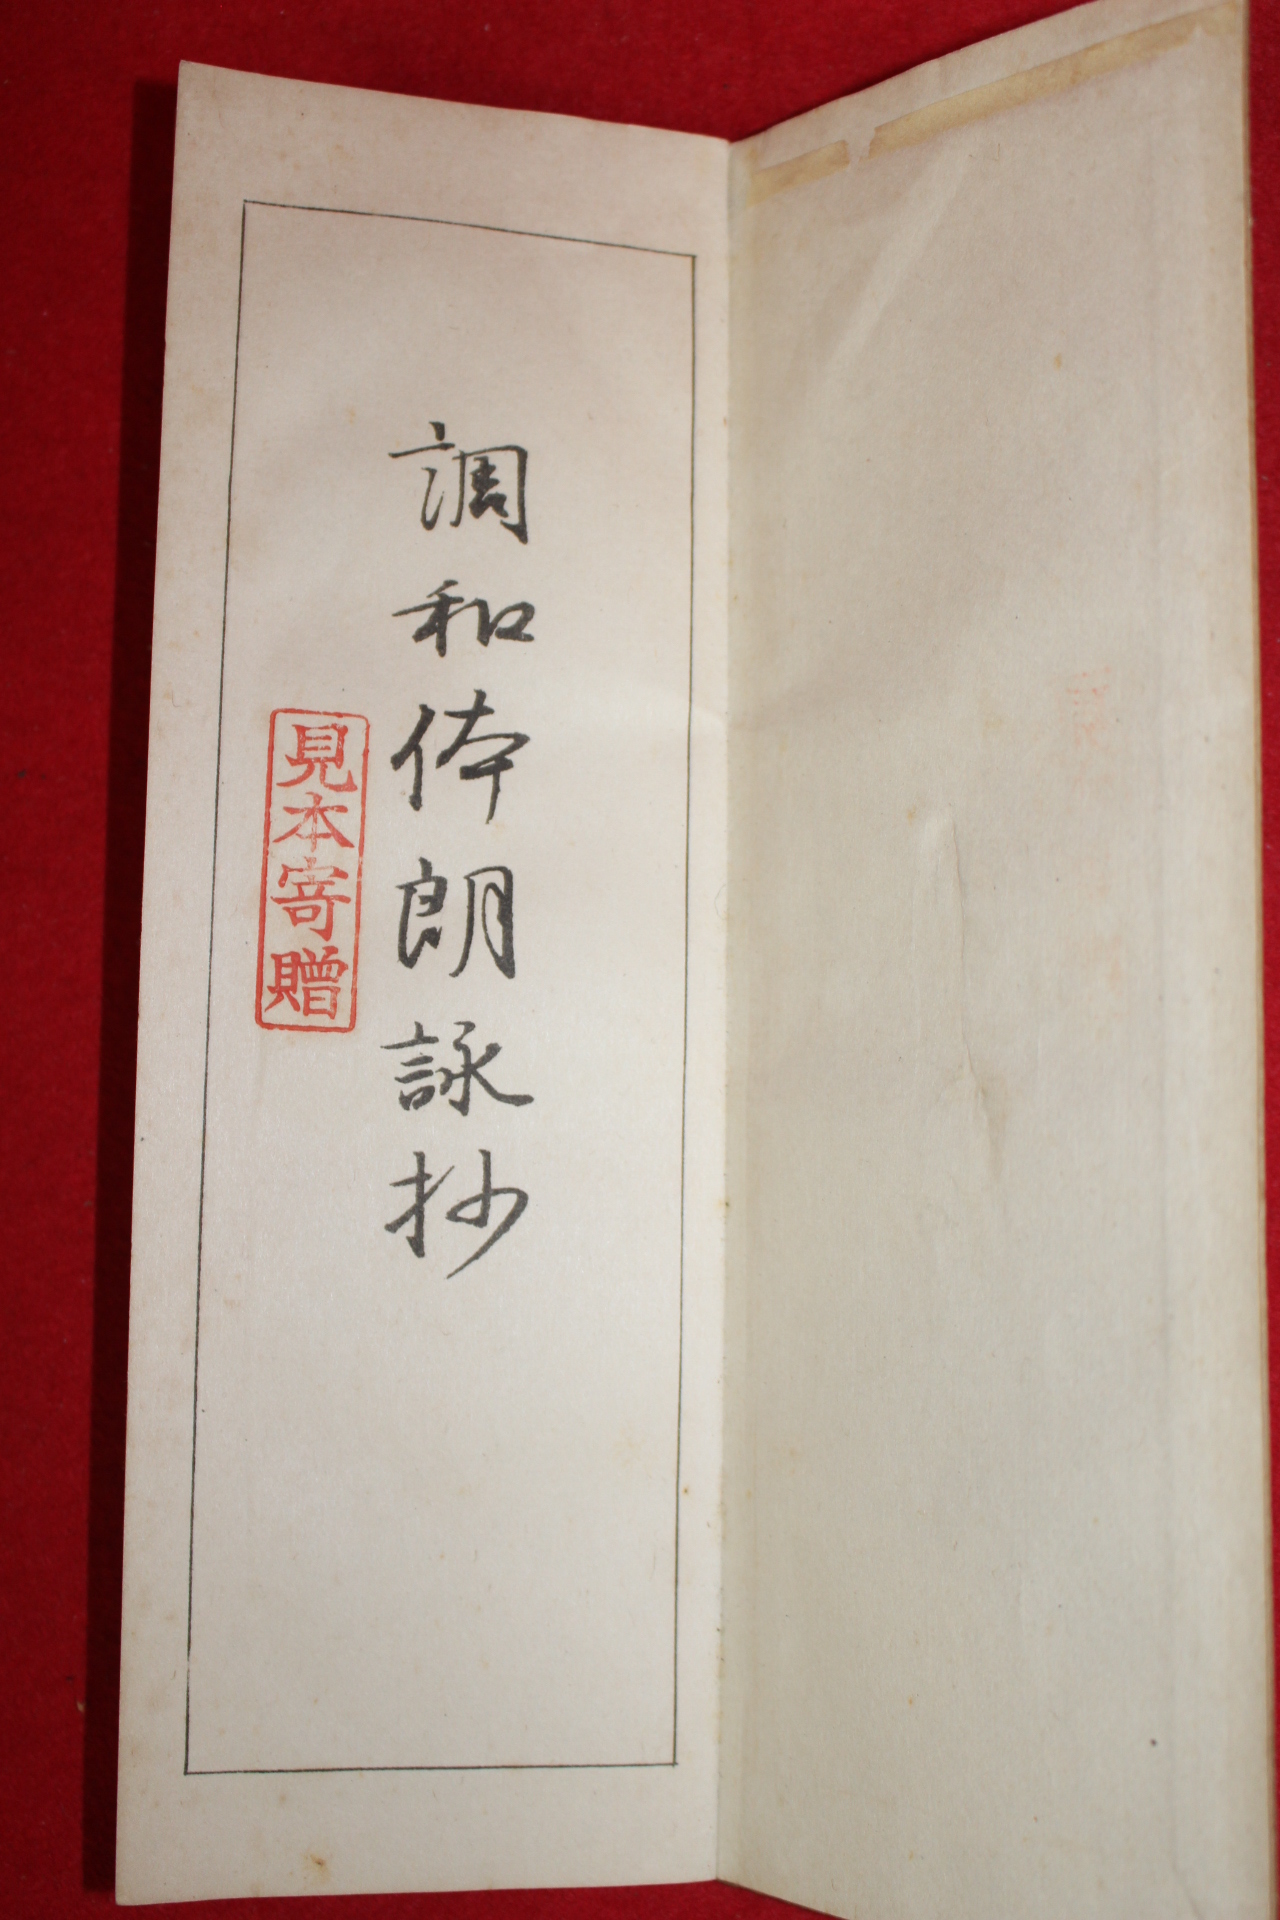 調和体朗詠抄
見本寄贈